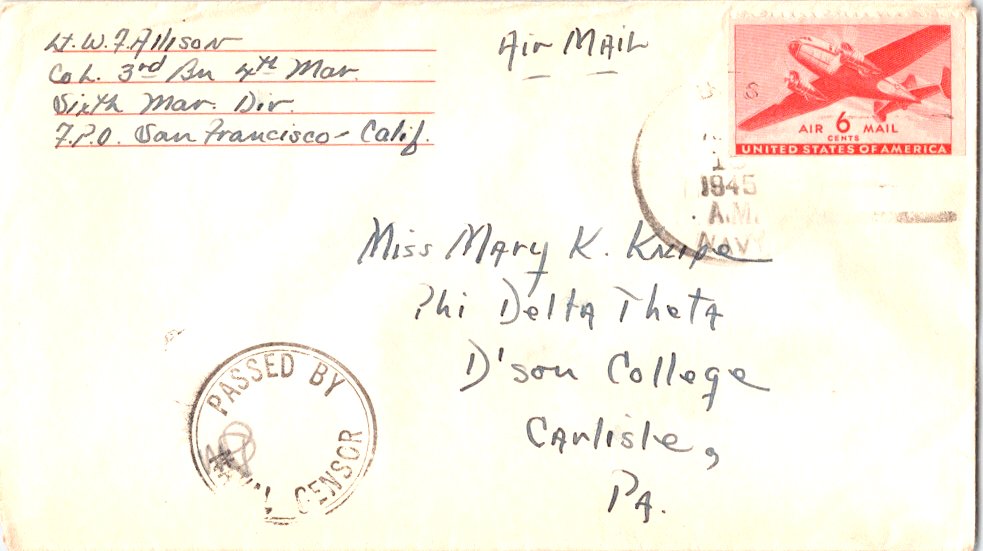 Lt. W. F. Allison
Co L. 3rd Bn 4th Mar.
Sixth Mar. Div.
F.P.O. San Francisco - Calif.
Air Mail
U S
AIR 6 MAIL
CENTS
UNITED STATES OF AMERICA
1945
A.M.
NAVY
Miss Mary K. Knipe
Phi Delta Theta
D'son College
Carlisle,
PA.
PASSED BY
NAVAL CENSOR